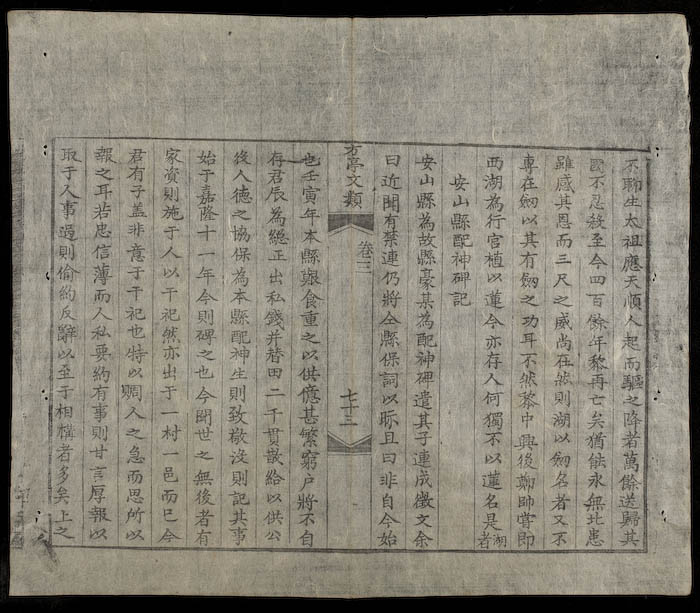 不聊生太祖應天順人起而驅之降者萬餘送歸其
國不忍殺至今四百餘年黎再亡矣猶能永無北患
雖感其恩而三尺之威尚在然則湖以劒名者又不
專在劒以其有劒之功耳不然黎中興後鄭帥嘗即
西湖為行宮植以蓮今亦存人何獨不以蓮名是湖者
安山縣配神碑記
安山縣為故縣豪某為配神碑遣其子連成徵文余
曰近聞有禁連仍將仝縣保詞以眎且曰非自今始
方亭文類
卷三
七十三
也壬寅年本縣艱食重之以供億甚繁窮户將不自
存君辰為總正出私錢并替田二千貫散給以供公
後人德之協保為本縣配神生則致敬沒則記其事
始于嘉隆十一年今則碑之也今聞世之無後者有
家資則施于人以干祀然亦出于一村一邑而已今
君有子盖非意于干祀也特以賙人之急而思所以
報之耳若忠信薄而人私要約有事則甘言厚報以
取于人事過則偷約反辭以至于相構者多矣上之